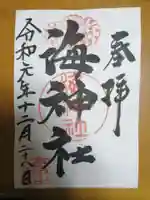 奉拝
海神社
令和元年十二月二十八日